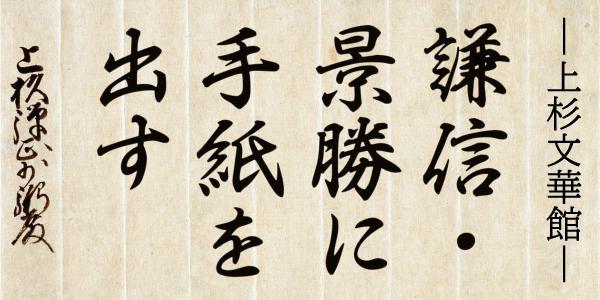 ―上杉文華館―
謙信・
景勝に
手紙を
出す
上杉弾正少弼殿